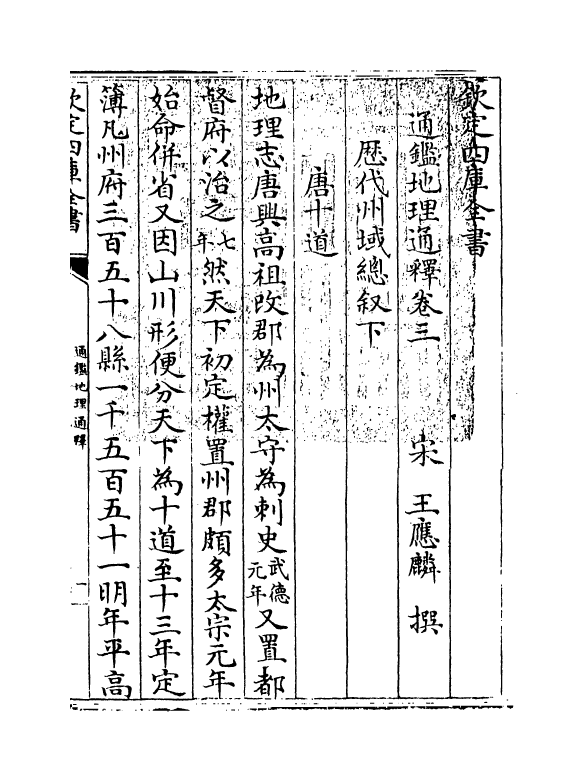 欽定四庫全書
通鑑地理通釋卷三
宋 王應麟 撰
歷代州域總叙下
唐十道
地理志唐興高祖改郡為州太守為刺史武德元年又置都
督府以治之七年然天下初定權置州郡頗多太宗元年
始命併省又因山川形便分天下為十道至十三年定
簿凡州府三百五十八縣一千五百五十一明年平高
欽定四庫全書
通鑑地理通釋
一